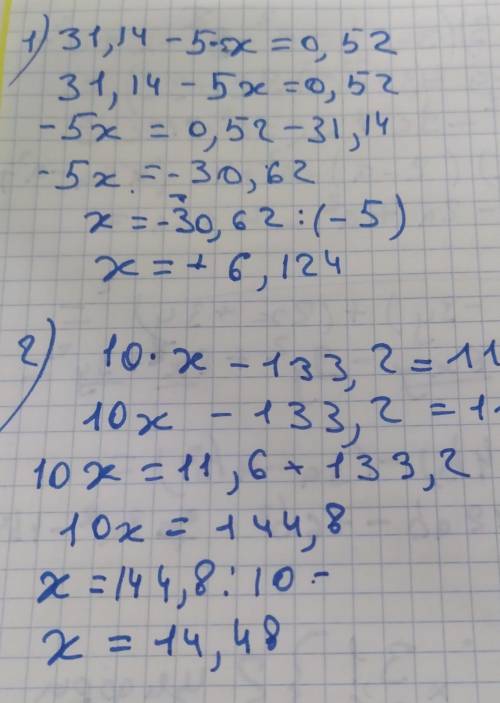 1) 31,14 - 5·x = 0,52
31,14 - 5x = 0,52
-5x = 0,52 - 31,14
-5x = -30,62
x = -30,62 : (-5)
x = + 6,124
2) 10·x - 133,2 = 11
10x - 133,2 = 11
10x = 11,6 + 133,2
10x = 144,8
x = 144,8 : 10 -
x = 14,48